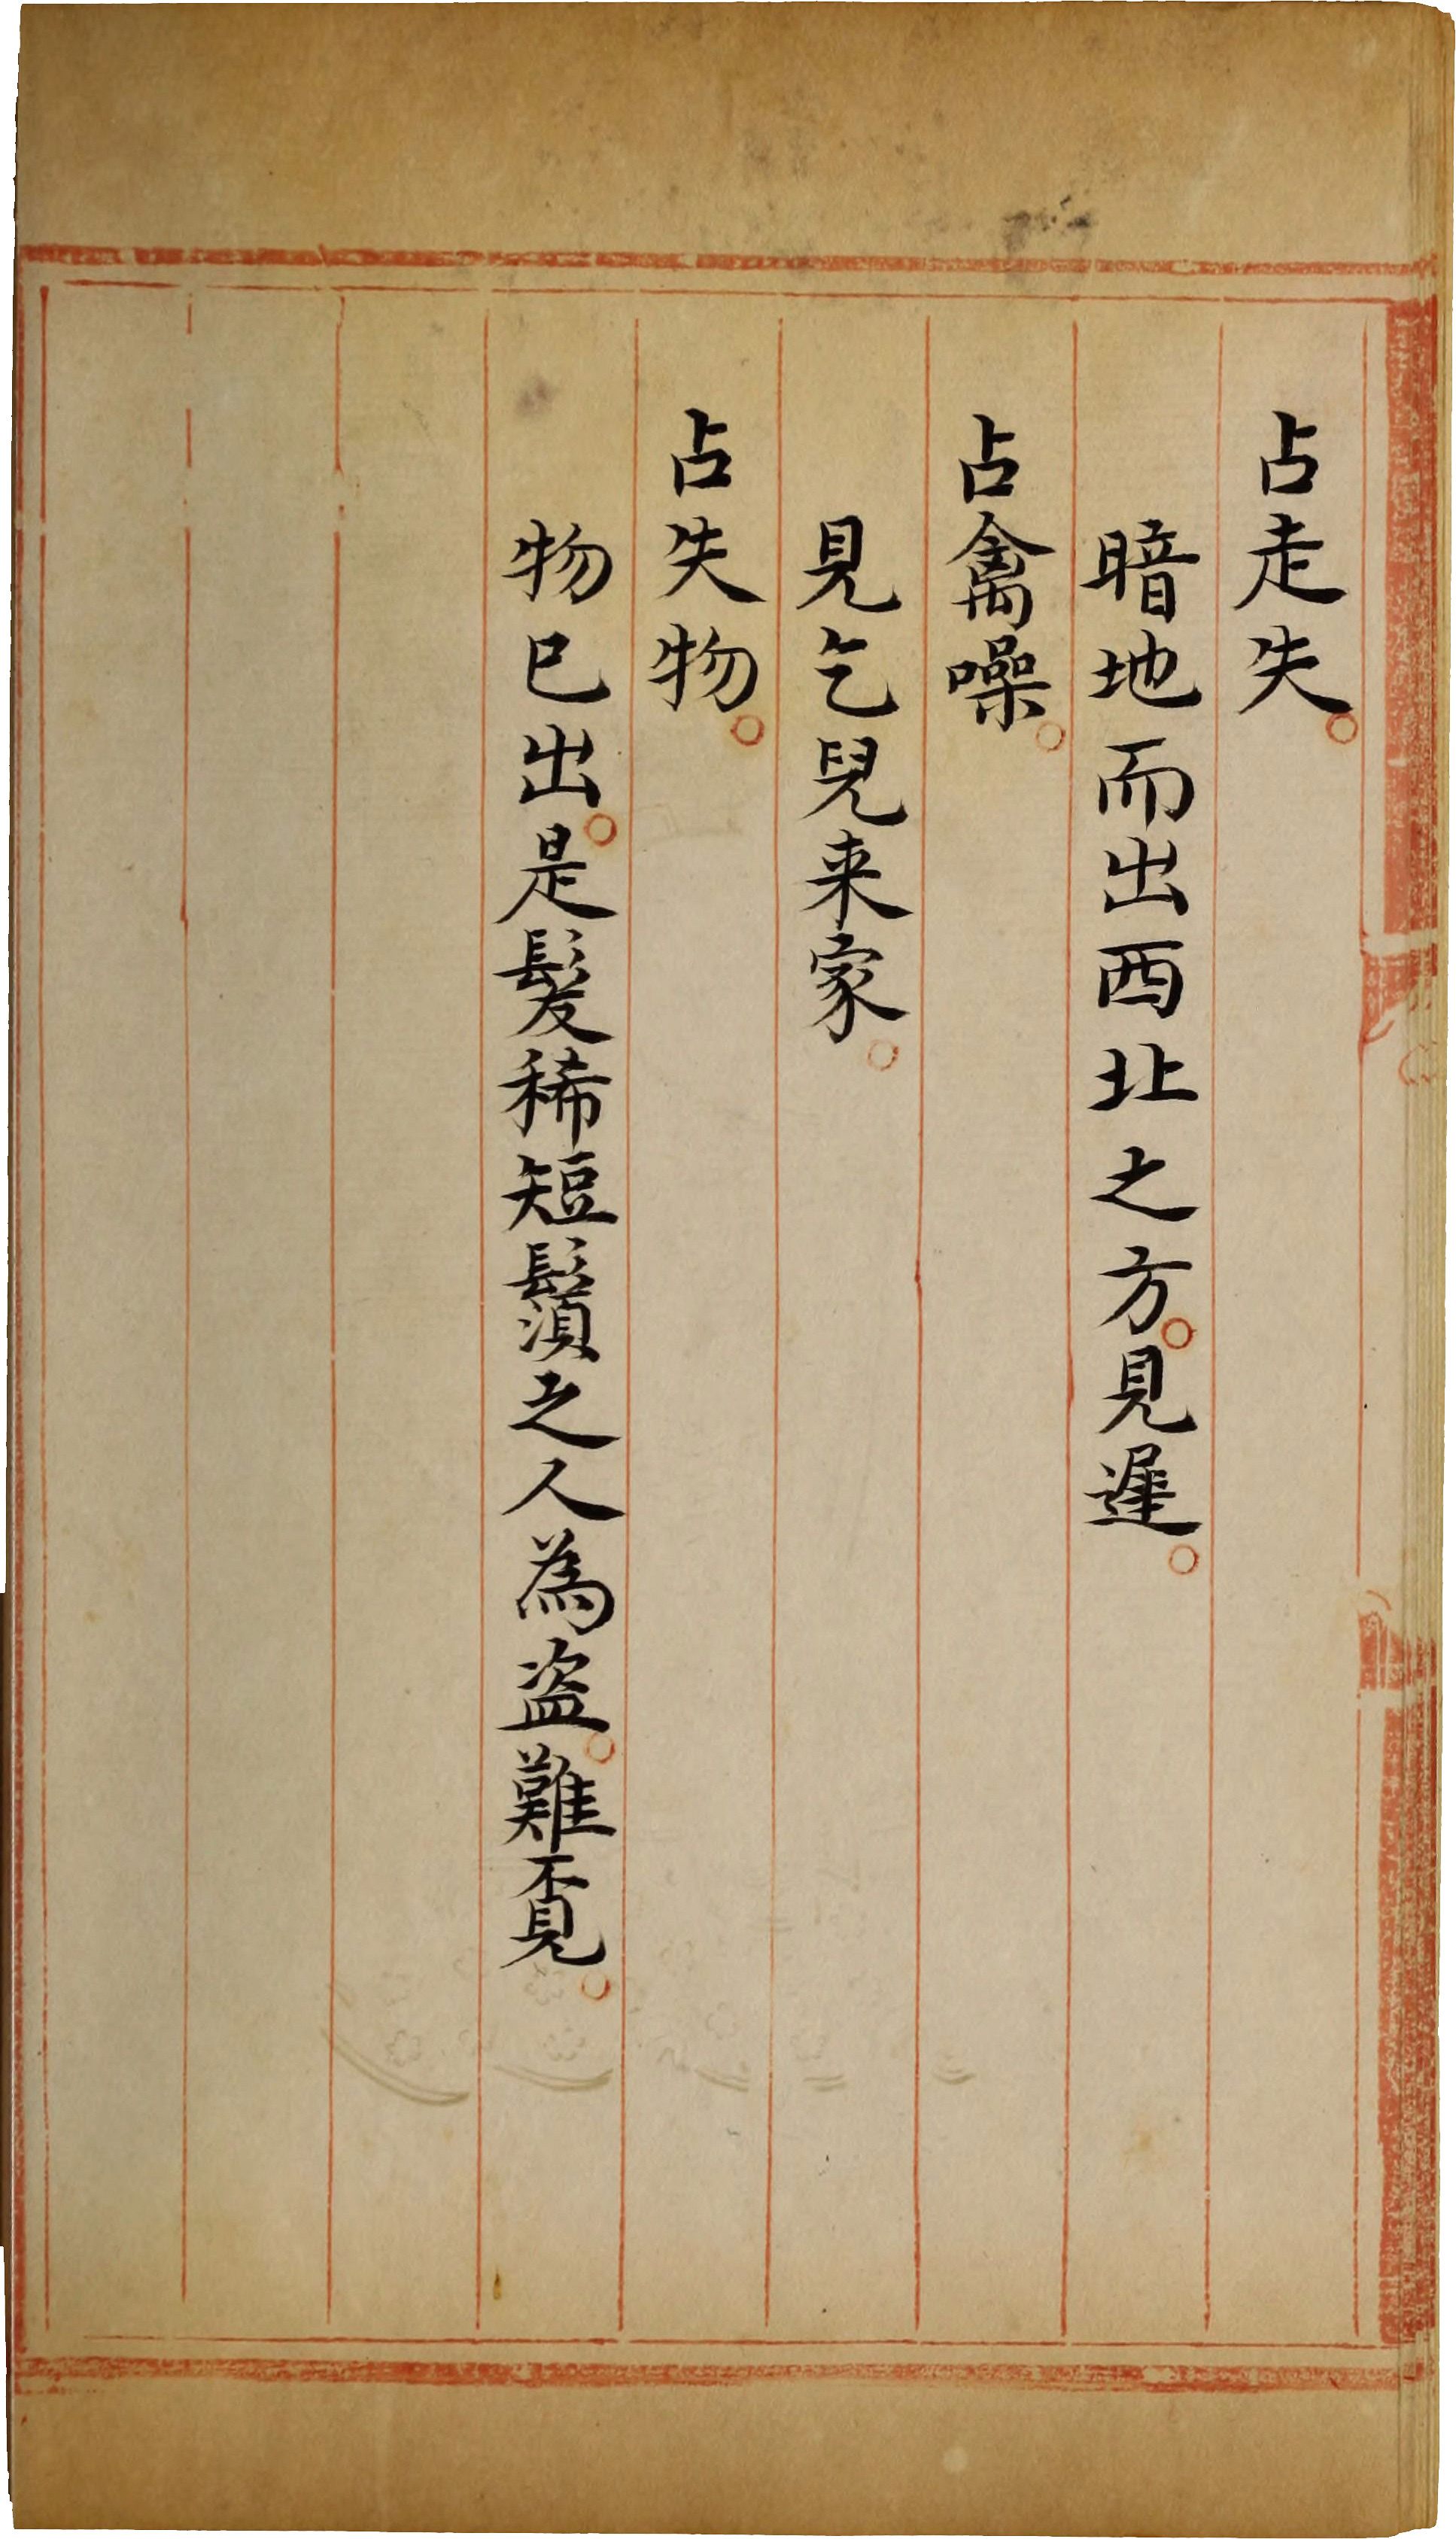 占走失。
暗地而出西北之方。見遲。
占禽噪。
見乞兒来家。
占失物。
物已出。是髮稀短鬚之人為盜。難覔。